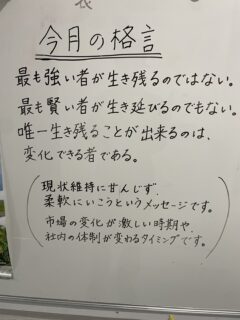 今月の格言
最も強い者が生き残るのではない。
最も賢い者が生き延びるのでもない。
唯一生き残ることが出来るのは、
変化できる者である。
(現状維持に甘んじず、
柔軟にいこうというメッセージです。
市場の変化が激しい時期や、
社内の体制が変わるタイミングです。)